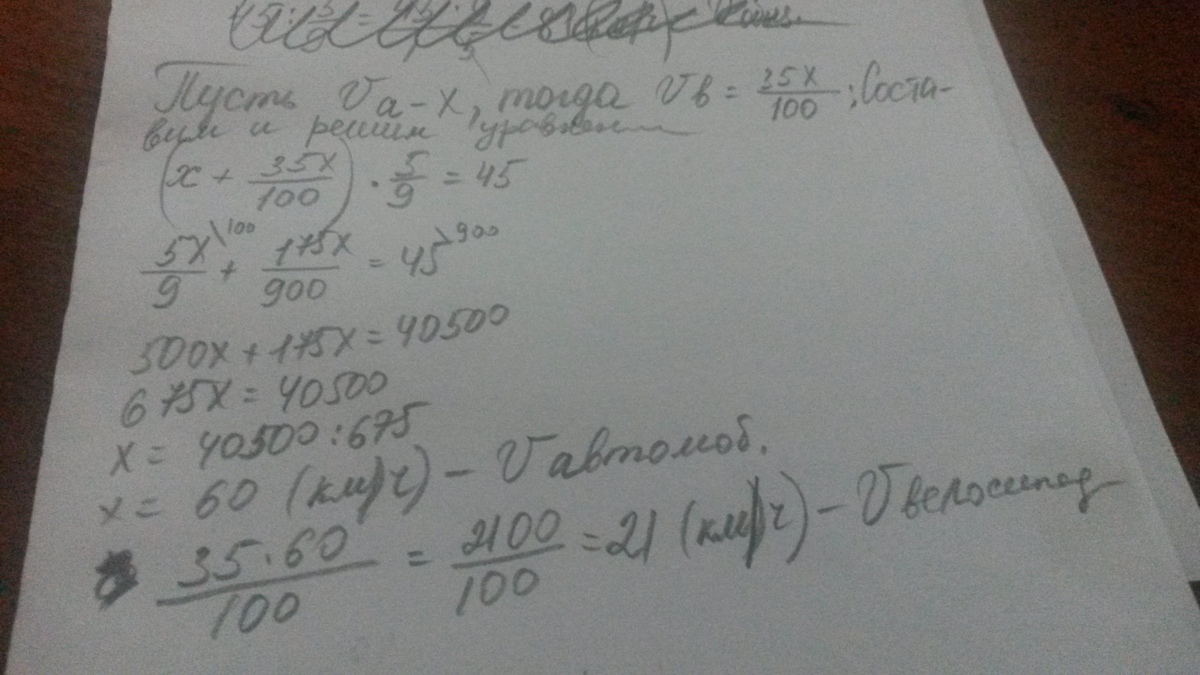 Пусть Va - x, тогда Vв = 35x/100; Соста-
вим и решим уравнен
(x + 35x/100) · 5/9 = 45
5x/9 \100 + 175x/900 = 45 \900
500x + 175x = 40500
675x = 40500
x = 40500 : 675
x = 60 (км/ч) - V автомоб.
35 · 60/100 = 2100/100 = 21 (км/ч) - V велосипед